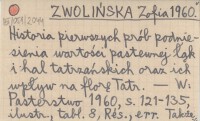 ZWOLIŃSKA Zofia 1960.
Historia pierwszych prób podnie-
sienia wartości pastewnej łąk
i hal tatrzańskich oraz ich
wpływ na florę Tatr. — W:
Pasterstwo 1960, s. 121-135,
ilustr., tabl. 8, Rés., err. Także